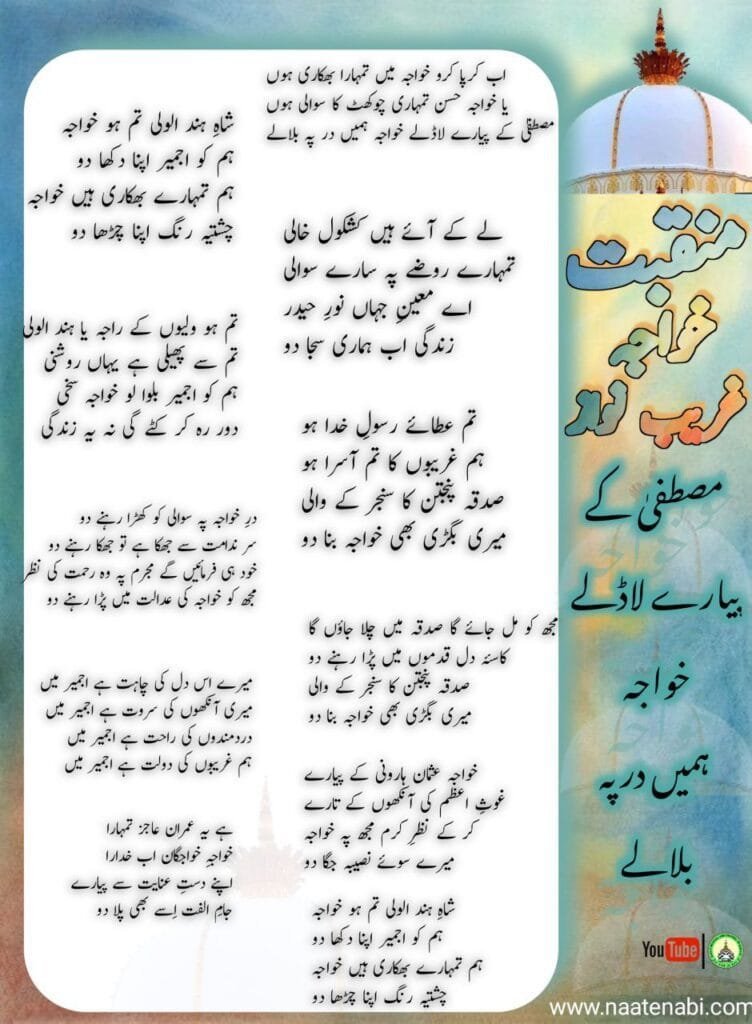 منقبت
خواجہ
غریب نواز
مصطفیٰ کے
پیارے لاڈلے
خواجہ
ہمیں در پہ
بلالے
اب کرپا کرو خواجہ میں تمہارا بھکاری ہوں
یا خواجہ حسن تمہاری چوکھٹ کا سوالی ہوں
مصطفیٰ کے پیارے لاڈلے خواجہ ہمیں در پہ بلالے
لے کے آئے ہیں کشکول خالی
تمہارے روضے پہ سارے سوالی
اے معینِ جہاں نورِ حیدر
زندگی اب ہماری سجا دو
تم عطائے رسولِ خدا ہو
ہم غریبوں کا تم آسرا ہو
صدقہ پنجتن کا سنجر کے والی
میری بگڑی بھی خواجہ بنا دو
مجھ کو مل جائے گا صدقہ میں چلا جاؤں گا
کاسئہ دل قدموں میں پڑا رہنے دو
صدقہ پنجتن کا سنجر کے والی
میری بگڑی بھی خواجہ بنا دو
خواجہ عثمان ہارونی کے پیارے
غوثِ اعظم کی آنکھوں کے تارے
کر کے نظرِ کرم مجھ پہ خواجہ
میرے سوئے نصیبہ جگا دو
شاہِ ہند الولی تم ہو خواجہ
ہم کو اجمیر اپنا دکھا دو
ہم تمہارے بھکاری ہیں خواجہ
چشتیہ رنگ اپنا چڑھا دو
شاہِ ہند الولی تم ہو خواجہ
ہم کو اجمیر اپنا دکھا دو
ہم تمہارے بھکاری ہیں خواجہ
چشتیہ رنگ اپنا چڑھا دو
تم ہو ولیوں کے راجہ یا ہند الولی
تم سے پھیلی ہے یہاں روشنی
ہم کو اجمیر بلوا لو خواجہ سخی
دور رہ کر کٹے گی نہ یہ زندگی
درِ خواجہ پہ سوالی کو کھڑا رہنے دو
سر ندامت سے جھکا ہے تو جھکا رہنے دو
خود ہی فرمائیں گے مجرم پہ وہ رحمت کی نظر
مجھ کو خواجہ کی عدالت میں پڑا رہنے دو
میرے اس دل کی چاہت ہے اجمیر میں
میری آنکھوں کی سروت ہے اجمیر میں
دردمندوں کی راحت ہے اجمیر میں
ہم غریبوں کی دولت ہے اجمیر میں
ہے یہ عمران عاجز تمہارا
خواجہِ خواجگان اب خدارا
اپنے دستِ عنایت سے پیارے
جامِ الفت اِسے بھی پلا دو
YouTube
www.naatenabi.com